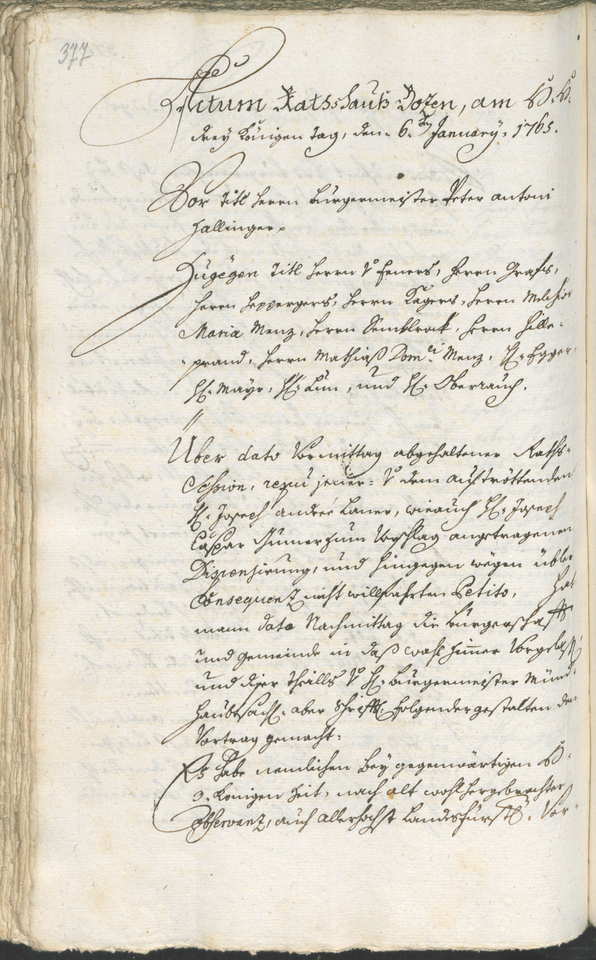 377
Actum Ratshauß Bozen, am H: H:
drey Königen tag, den 6.ten January, 1765.
Vor titl herrn Bürgermeister Peter antoni
Hallinger.
Zugegen titl herrn v: feners, herrn Grafs,
herrn Hepperger, herrn Kagers, herrn Melchior
Maria Menz, herrn Sembleroch, herrn hille-
prand, herrn Mathiaß Dom: Menz, H: Egger,
H: Mayr, H: Lun, und H: Oberrauch.
Über dato Vormittag abgehaltener Raths-
Session, jener v: dem austrettenden
H: Joseph andreé Laner, wie auch H: Joseph
Caspar Gumer zum Vorschlag angetragenen
Dispensirung, und hingegen wegen übler
Consequenz nicht willfahrten Petito, hat
mann dato Nachmittag die Bürgerschafft
und gemeinde in daß wahl Zimmer Vorgelaßt
und dieser theills v: H: Bürgermeister Münd-
haubtsächl: aber schrifftl: folgender gestalten den
Vortrag gemacht.
Es habe nemlichen bey gegenwärtigen H:
3. Königen Zeit, nach alt wohl hergebrachter
observanz, auch allerhöchst Landsfürstl: Vor-